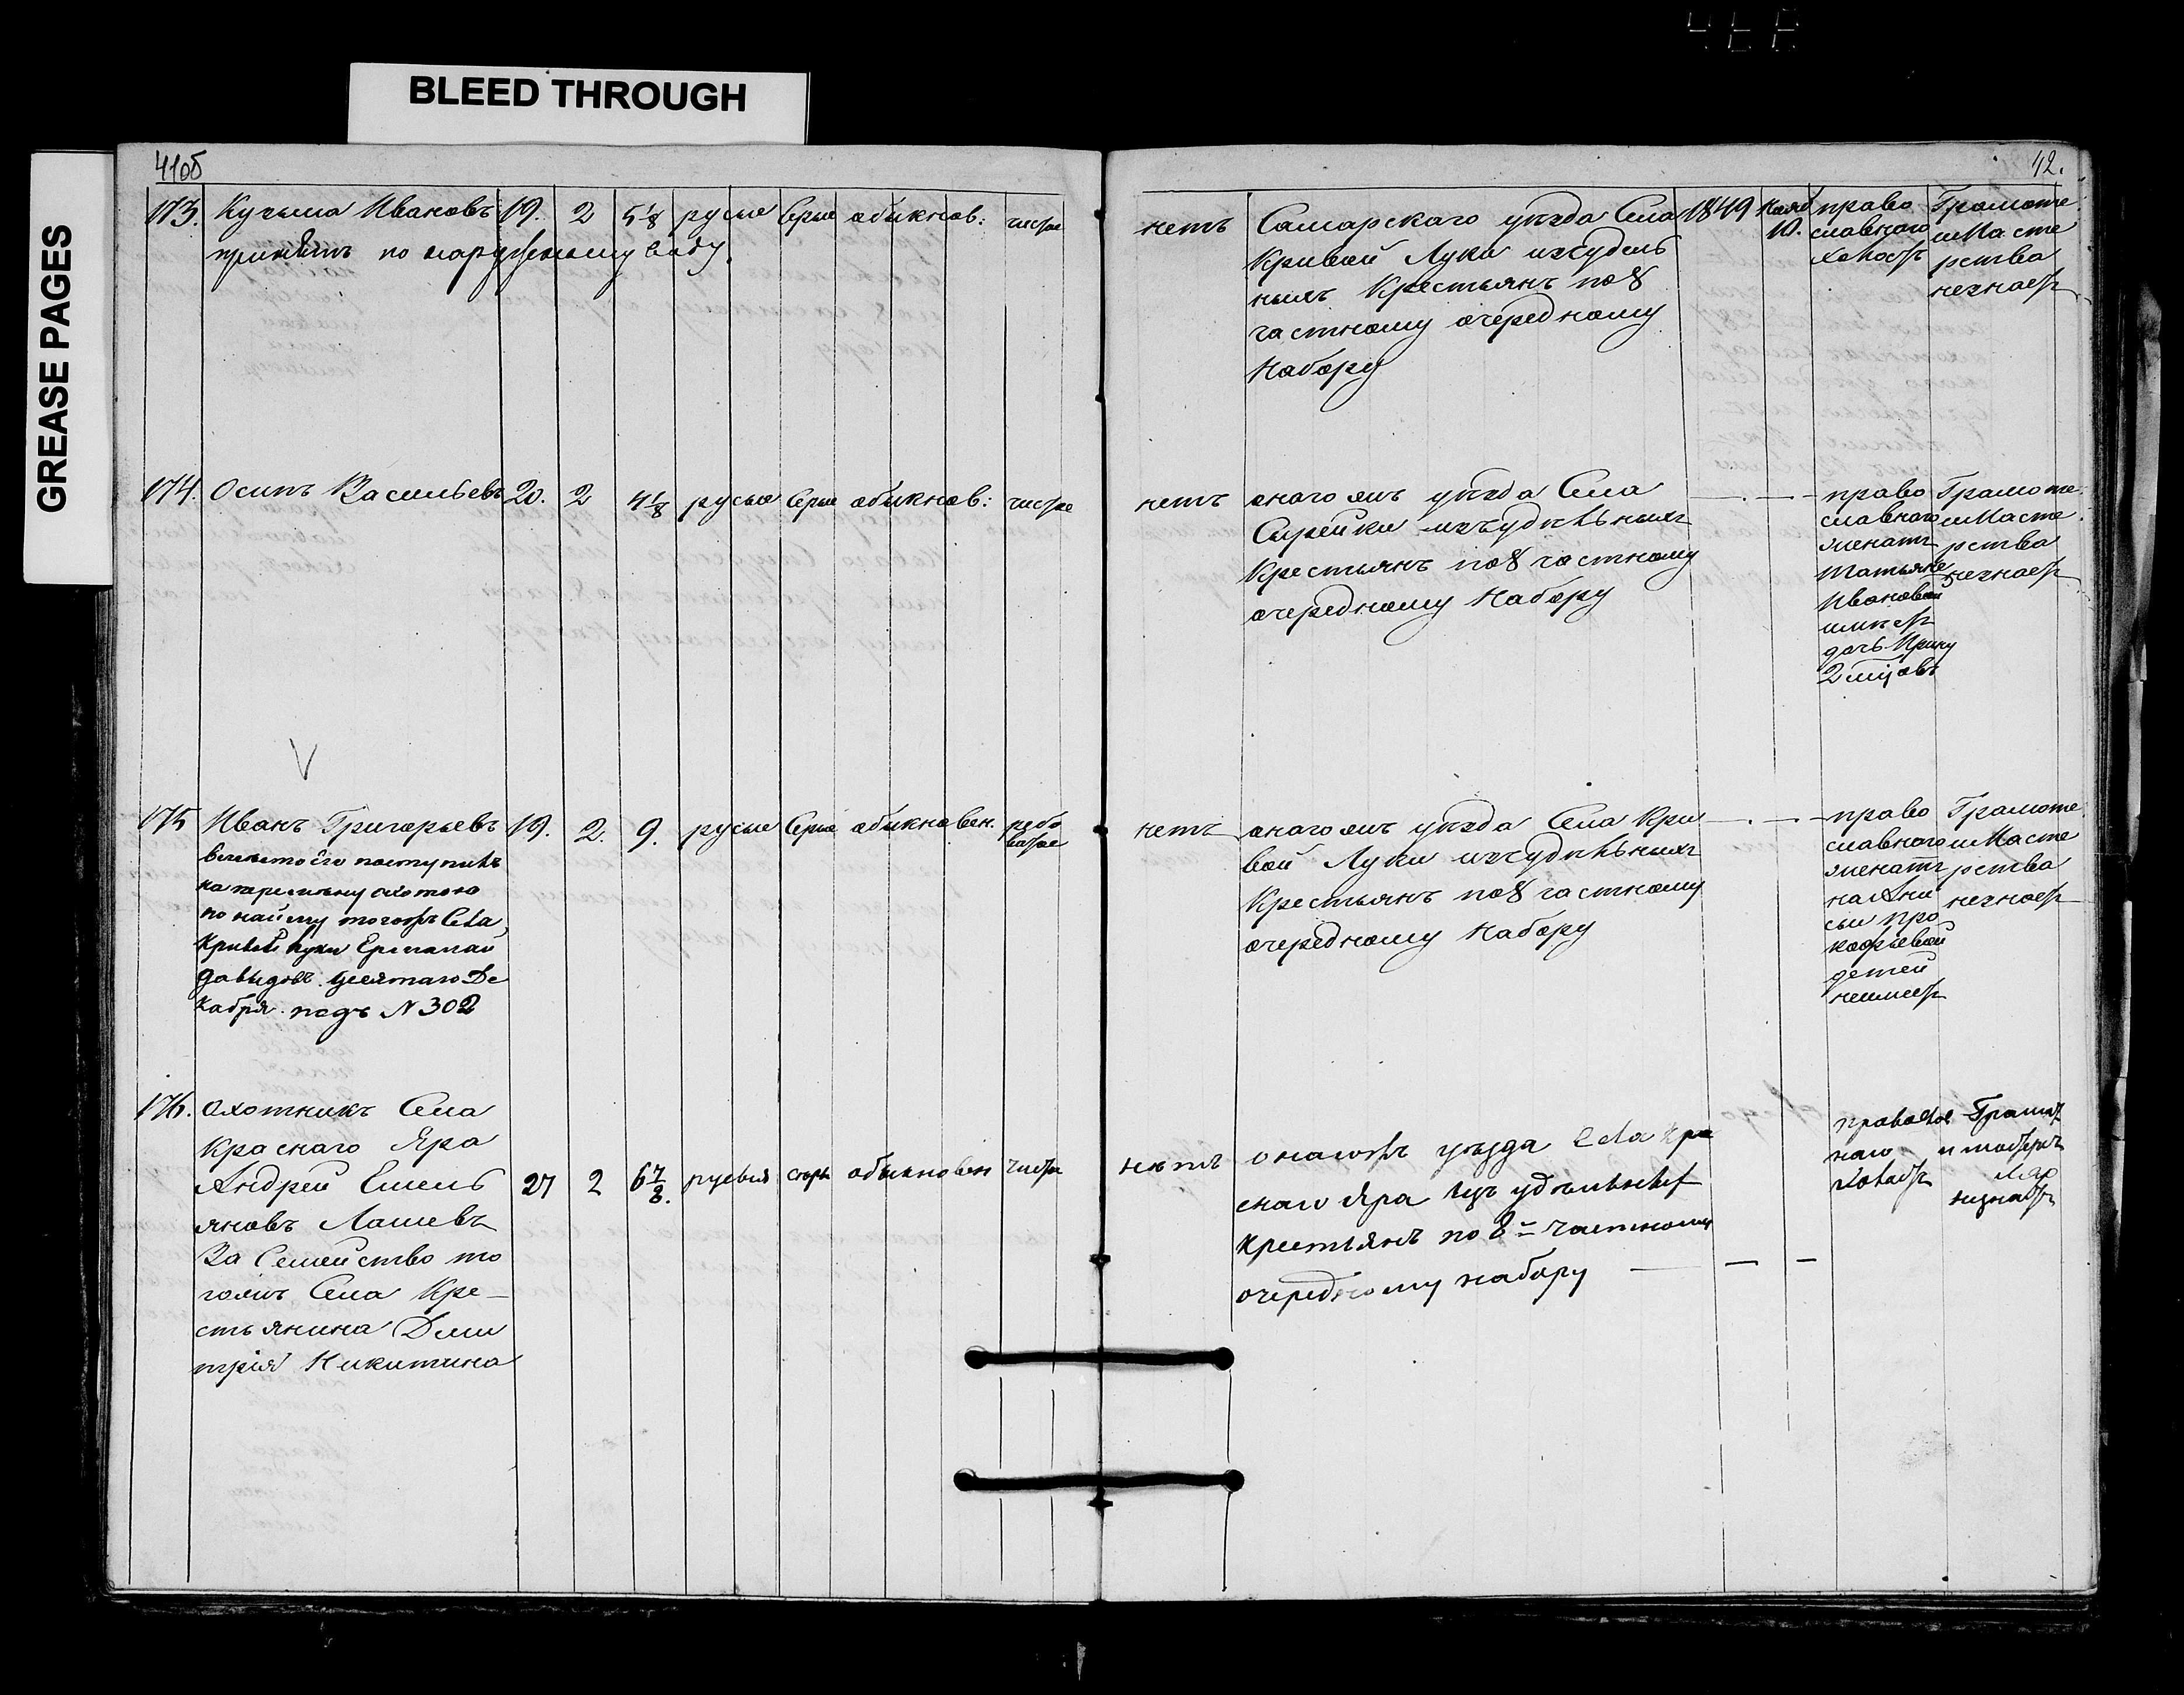 BLEED THROUGH
GREASE PAGES
41об
42.
173. Кузьма Ивановъ 19. 2 5 1/8 русые Серые обыкнов: чистое
принятъ по наружному виду.
нетъ Самарскаго уѣзда Села 1849 Нояб 10.
Кривой Луки изъудель
ныхъ Крестьянъ по 8
частному очередному
Набору
право
славнаго
Холостъ
Грамоте
иМасте
рства
незнаетъ
174. Осипъ Васильевъ 20. 2 4 1/8 русые Серые обыкнов: чистое
нетъ онагожъ уѣзда Села
Сырейки изъудѣльныхъ
Крестьянъ по 8 частному
очередному Набору
право
славнаго
женатъ
Татьяне
Ивановой
имеетъ
дочь Ирину
Грамоте
иМасте
рства
незнаетъ
175 Иванъ Григорьевъ 19. 2. 9. русые Серые обыкновен. рябо
ватое
вместо Его поступилъ
на перемену охотою
по найму тогожъ Села
Кривой Луки Ермолай
Давыдовъ Десятаго Де
кабря подъ N 302
нетъ онагожъ уѣзда Села Кри
вой Луки изъудѣльныхъ
Крестьянъ по 8 частному
очередному Набору
право
славнаго
женатъ
на Ани
сьи Про
кофьевой
детей
неимеетъ
Грамоте
иМасте
рства
незнаетъ
176. Охотникъ Села
Краснаго Яра
Андрей Емель
яновъ Лашевъ
За Семейство то
гожъ Села Кре-
стьянина Дми
трія Никитина
27 2 6 7/8. русыя серы обыкновен чистое
нѣтъ онагожъ уѣзда Села Кра
снаго Яра изъ удѣльныхъ
крестьянъ по 8й частному
очередному набору
православ
наго
Холостъ
Грамот
и мастерст
незнаетъ